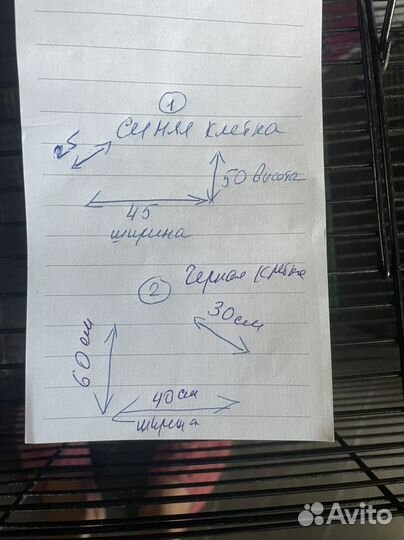 1
синяя клетка
25
50 высота
45
ширина
2 Черная клетка
30см
60см
40см
ширина
Avito